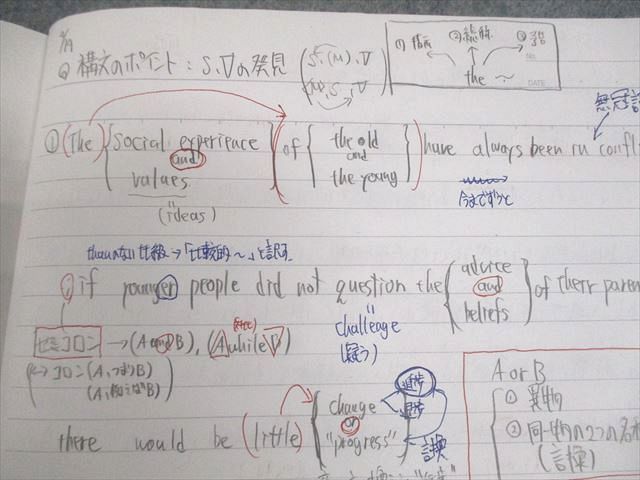 構文のポイント : S, Vの発見 (S, (M), V
(M), S, V
② 総称
the ～
NO.
DATE
① (The) social experience and values of the old and the young have always been in confl
(ideas)
今までずっと
thanのない比較→「比較的～」と訳す。
; if younger people did not question the advice and beliefs of their paren
challenge
(疑う)
セミコロン → (A and B), (A while B)
(↔ コロン (A, つまりB)
(A, 例えばB)
there would be (little) change or "progress"
進歩
言換
A or B
① 異物
② 同一物の2つの名称
(言換)